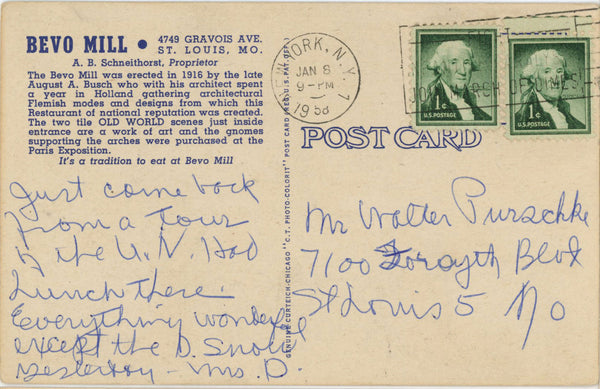 BEVO MILL • 4749 GRAVOIS AVE.
ST. LOUIS, MO.
A. B. Schneithorst, Proprietor
The Bevo Mill was erected in 1916 by the late
August A. Busch who with his architect spent
a year in Holland gathering architectural
Flemish modes and designs from which this
Restaurant of national reputation was created.
The two tile OLD WORLD scenes just inside
entrance are a work of art and the gnomes
supporting the arches were purchased at the
Paris Exposition.
It's a tradition to eat at Bevo Mill
Just come back
from a Tour
of the U.N. Had
Lunch there.
Everything wonderful
except the D. Snow
yesterday - Mrs. D.
GENUINE CURTEICH-CHICAGO "C.T. PHOTO-COLORIT" POST CARD (REG. U.S. PAT. OFF.)
YORK, N.Y.
JAN 8
9-PM
1958
1
1¢
U.S. POSTAGE
1¢
U.S. POSTAGE
MARCH
DIMES
POST CARD
Mr Walter Purschke
7100 Forsyth Blvd
St Louis 5 Mo